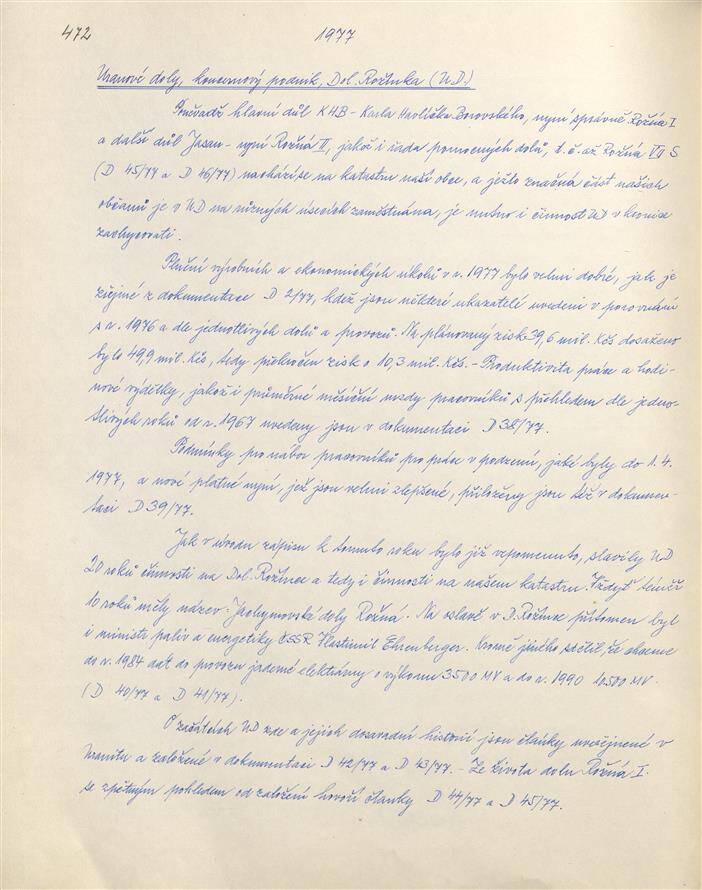 472
1977
Uranové doly, koncernový podnik, Dol. Rožínka (UD)
Poněvadž hlavní důl KHB - Karla Havlíčka Borovského, nyní správně Rožná I
a další důl Jasan - nyní Rožná II, jakož i řada pomocných dolů, t. č. až Rožná VI S
(D 45/77 a D 46/77) nachází se na katastru naší obce, a ježto značná část našich
občanů je v UD na různých úsecích zaměstnána, je nutno i činnost UD v kronice
zachycovati.
Plnění výrobních a ekonomických úkolů v r. 1977 bylo velmi dobré, jak je
zřejmé z dokumentace D 2/77, kdež jsou některé ukazatelé uvedeni v porovnání
s r. 1976 a dle jednotlivých dolů a provozů. Na plánovaný zisk 39,6 mil. Kčs dosaženo
bylo 49,9 mil. Kčs, tedy překročen zisk o 10,3 mil. Kčs. - Produktivita práce a hodi-
nové výdělky, jakož i průměrné měsíční mzdy pracovníků s přehledem dle jedno-
tlivých roků od r. 1967 uvedeny jsou v dokumentaci D 38/77.
Podmínky pro nábor pracovníků pro práce v podzemí, jaké byly do 1. 4.
1977, a nové platné nyní, jež jsou velmi zlepšené, přiloženy jsou též v dokumen-
taci D 39/77.
Jak v úvodu zápisu k tomuto roku bylo již vzpomenuto, slavily UD
20 roků činnosti na Dol. Rožínce a tedy i činnosti na našem katastru. Vždyť téměř
10 roků měly název: Jáchymovské doly Rožná. Na oslavě v D. Rožínce přítomen byl
i ministr paliv a energetiky ČSSR Vlastimil Ehrenberger. Kromě jiného sdělil, že chceme
do r. 1984 dát do provozu jaderné elektrárny o výkonu 3500 MV a do r. 1990 10500 MV.
(D 40/77 a D 41/77).
O začátcích UD zde a jejich dosavadní historii jsou články uveřejnené v
Uranitu a založené v dokumentaci D 42/77 a D 43/77. - Ze života dolu Rožná I.
se zpětným pohledem od založení hovoří články D 44/77 a D 45/77.